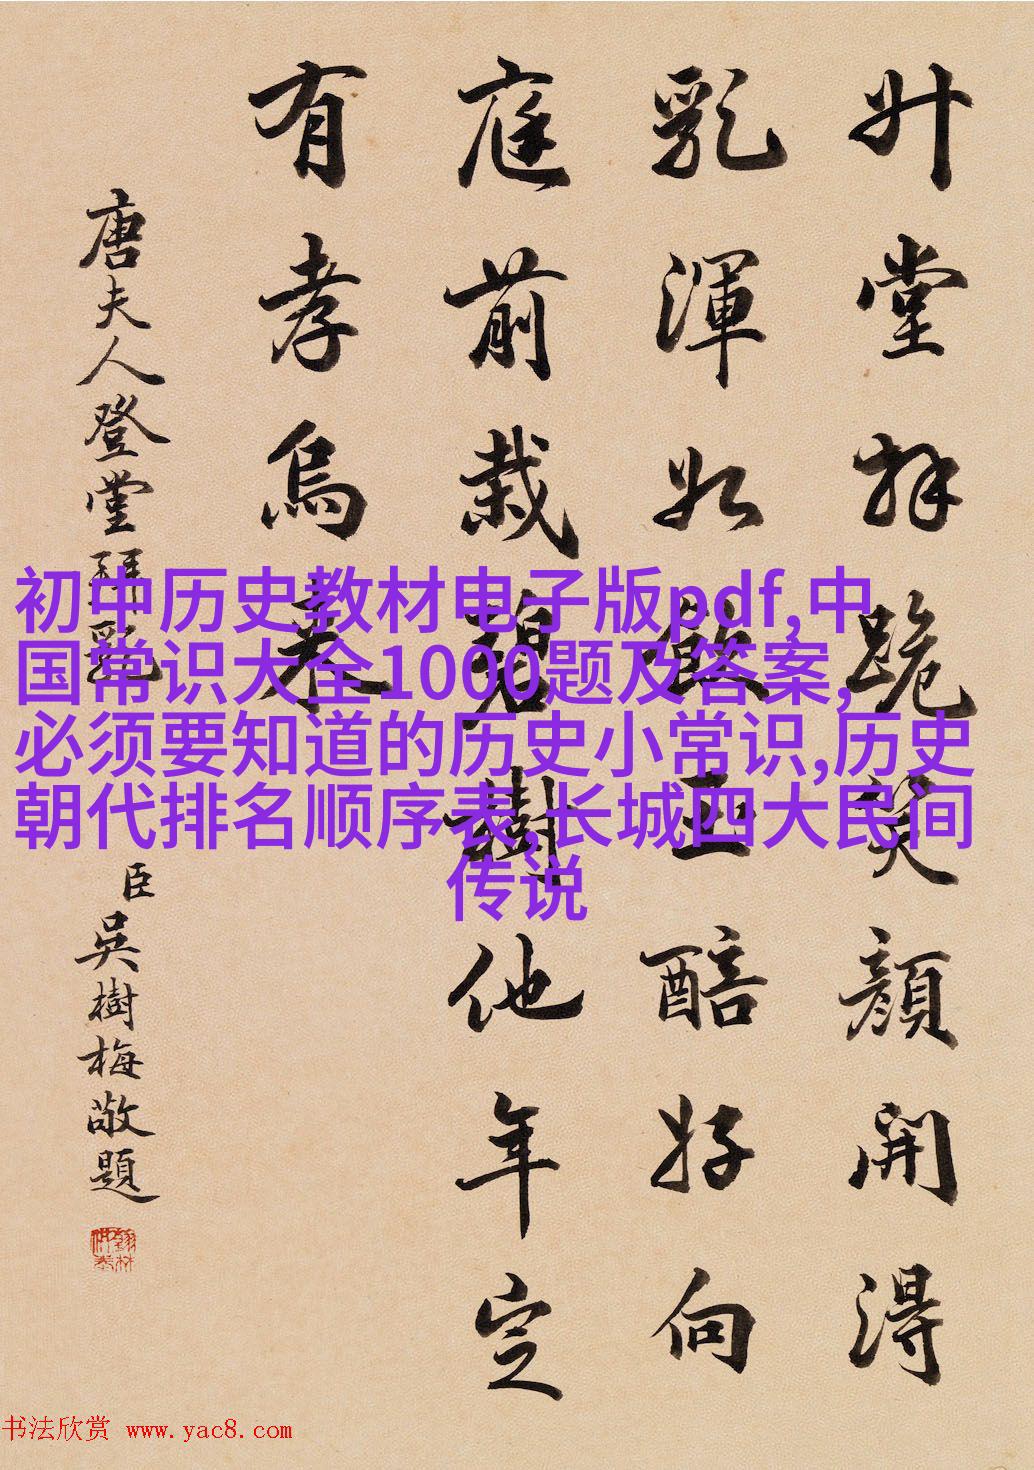 升堂拜跪笑顏開得
乳渾如飲玉醅好向
庭前栽碧樹他年定
有孝烏來
唐夫人登堂拜乳
臣吳樹梅敬題
初中历史教材电子版pdf,中
国常识大全1000题及答案,
必须要知道的历史小常识,历史
朝代排名顺序表,长城四大民间
传说
书法欣赏 www.yac8.com